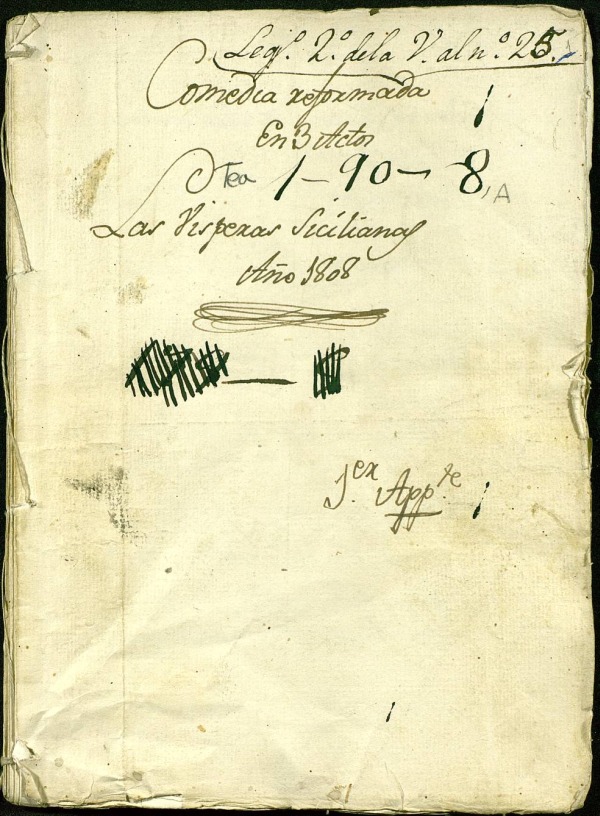 Leg.º 2.º de la V. al n.º 25.
Comedia reformada
1
En 3 Actos
Tea 1-90-8, A
Las Visperas Sicilianas
Año 1808
1.er App.te 1
1